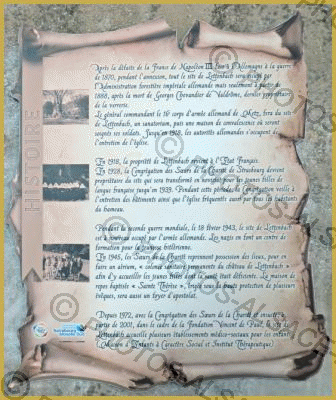 HISTOIRE
Après la défaite de la France de Napoléon III face à l'Allemagne à la guerre
de 1870, pendant l'annexion, tout le site de Lettenbach sera occupé par
l'Administration forestière impériale allemande mais seulement à partir de
1888, après la mort de Georges Chevandier de Valdrôme, dernier propriétaire
de la verrerie.
Le général commandant le 16e corps d'armée allemand de Metz, fera du site
de Lettenbach, un sanatorium, puis une maison de convalescence où seront
soignés ses soldats. Jusqu'en 1918, les autorités allemandes s'occupent de
l'entretien de l'église.
En 1918, la propriété de Lettenbach revient à l'Etat Français.
En 1928, la Congrégation des Sœurs de la Charité de Strasbourg devient
propriétaire du site qui sera transformé en noviciat pour les jeunes filles de
langue française jusqu'en 1939. Pendant cette période, la Congrégation veille à
l'entretien des bâtiments ainsi que l'église fréquentée aussi par tous les habitants
du hameau.
Pendant la seconde guerre mondiale, le 18 février 1943, le site de Lettenbach
est à nouveau occupé par l'armée allemande. Les nazis en font un centre de
formation pour la jeunesse hitlérienne.
En 1945, les Sœurs de la Charité reprennent possession des lieux, pour en
faire un aérium, « colonie sanitaire permanente du château de Lettenbach »
afin d'y accueillir les jeunes filles dont la santé était déficiente. La maison de
repos baptisée « Sainte Thérèse », placée sous la haute protection de plusieurs
évêques, sera aussi un foyer d'apostolat.
Depuis 1972, avec la Congrégation des Sœurs de la Charité et ensuite à
partir de 2001, dans le cadre de la Fondation Vincent de Paul, le site de
Lettenbach accueille plusieurs établissements médico-sociaux pour les enfants
(Maison d'Enfants à Caractère Social et Institut Thérapeutique)
Sarrebourg
Moselle Sud